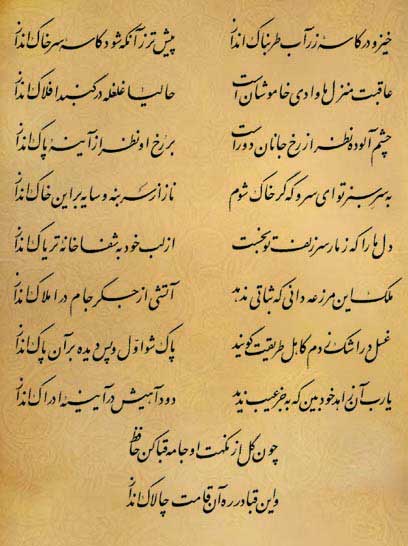 خیز و در کاسهٔ زر آب طربناک انداز پیش‌تر زآنکه شود کاسهٔ سر خاک انداز
عاقبت منزل ما وادی خاموشان است حالیا غلغله در گنبد افلاک انداز
چشم آلوده نظر از رخ جانان دور است بر رخ او نظر از آینهٔ پاک انداز
به سر سبز تو ای سرو که گر خاک شوم ناز از سر بنه و سایه بر این خاک انداز
دل ما را که ز مار سر زلف تو بخست از لب خود به شفاخانه تریاک انداز
ملک این مزرعه دانی که ثباتی ندهد آتشی از جگر جام در املاک انداز
غسل در اشک زدم کاهل طریقت گویند پاک شو اول و پس دیده بر آن پاک انداز
یارب آن زاهد خودبین که به جز عیب ندید دود آهیش در آیینهٔ ادراک انداز
چون گل از نکهت او جامه قبا کن حافظ
واین قبا در ره آن قامت چالاک انداز